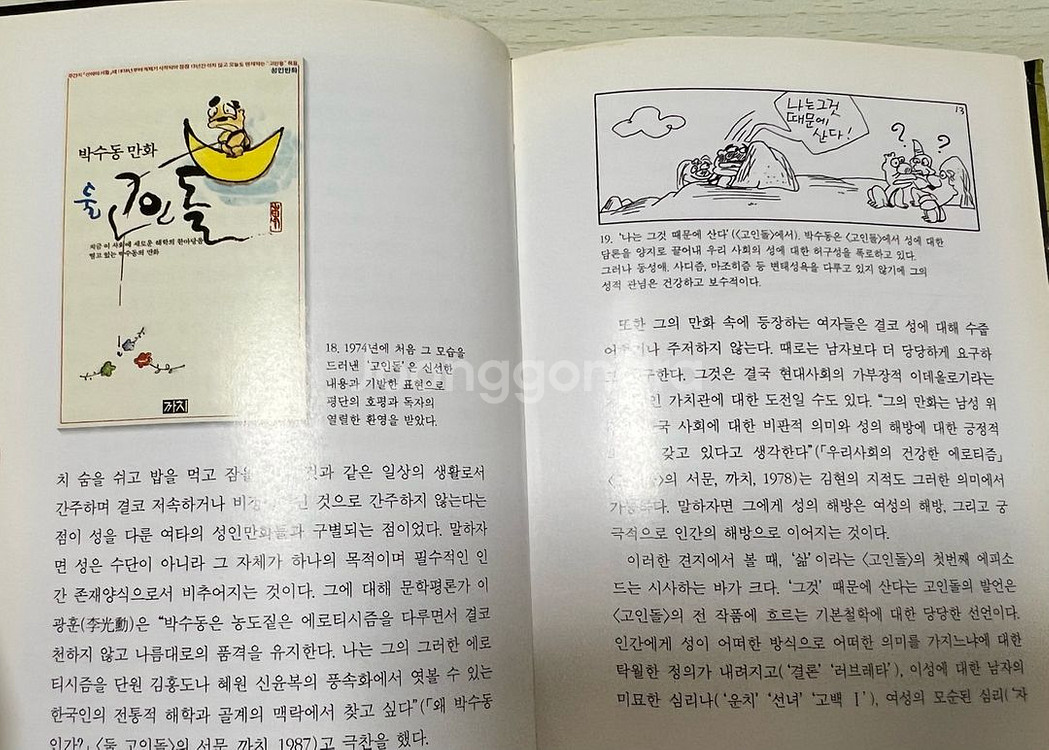 주간지 「선데이 서울」에 1974년부터 게재가 시작되어 점점 13년간 쉬지 않고 오늘도 연재되는 '고인돌' 허읍
성인만화
박수동 만화
숲 고인돌
지금 이 사회에 새로운 해학의 한마당을
펼고 있는 박수동의 만화
까치
18. 1974년에 처음 그 모습을
드러낸 '고인돌'은 신선한
내용과 기발한 표현으로
평단의 호평과 독자의
열렬한 환영을 받았다.
치 숨을 쉬고 밥을 먹고 잠을 것과 같은 일상의 생활로서
간주하며 결코 저속하거나 비정 인 것으로 간주하지 않는다는
점이 성을 다룬 여타의 성인만화들과 구별되는 점이었다. 말하자
면 성은 수단이 아니라 그 자체가 하나의 목적이며 필수적인 인
간 존재양식으로서 비추어지는 것이다. 그에 대해 문학평론가 이
광훈(李光勳)은 "박수동은 농도짙은 에로티시즘을 다루면서 결코
천하지 않고 나름대로의 품격을 유지한다. 나는 그의 그러한 에로
티시즘을 단원 김홍도나 혜원 신윤복의 풍속화에서 엿볼 수 있는
한국인의 전통적 해학과 골계의 맥락에서 찾고 싶다"(「왜 박수동
인가?」〈둘 고인돌〉의 서문, 까치, 1987)고 극찬을 했다.
나는 그것
때문에
산다!
13
? ?
19. '나는 그것 때문에 산다'(〈고인돌〉에서). 박수동은 〈고인돌〉에서 성에 대한
담론을 양지로 끌어내 우리 사회의 성에 대한 허구성을 폭로하고 있다.
그러나 동성애, 사디즘, 마조히즘 등 변태성욕을 다루고 있지 않기에 그의
성적 관념은 건강하고 보수적이다.
또한 그의 만화 속에 등장하는 여자들은 결코 성에 대해 수줍
어하거나 주저하지 않는다. 때로는 남자보다 더 당당하게 요구하
구한다. 그것은 결국 현대사회의 가부장적 이데올로기라는
인 가치관에 대한 도전일 수도 있다. "그의 만화는 남성 위
국 사회에 대한 비판적 의미와 성의 해방에 대한 긍정적
갖고 있다고 생각한다"(「우리사회의 건강한 에로티즘」
의 서문, 까치, 1978)는 김현의 지적도 그러한 의미에서
가능하다. 말하자면 그에게 성의 해방은 여성의 해방, 그리고 궁
극적으로 인간의 해방으로 이어지는 것이다.
이러한 견지에서 볼 때, '삶'이라는 〈고인돌〉의 첫번째 에피소
드는 시사하는 바가 크다. '그것' 때문에 산다는 고인돌의 발언은
〈고인돌〉의 전 작품에 흐르는 기본철학에 대한 당당한 선언이다.
인간에게 성이 어떠한 방식으로 어떠한 의미를 가지느냐에 대한
탁월한 정의가 내려지고('결론' '러브레타'), 이성에 대한 남자의
미묘한 심리나('운치' '선녀' '고백 Ⅰ'), 여성의 모순된 심리('자